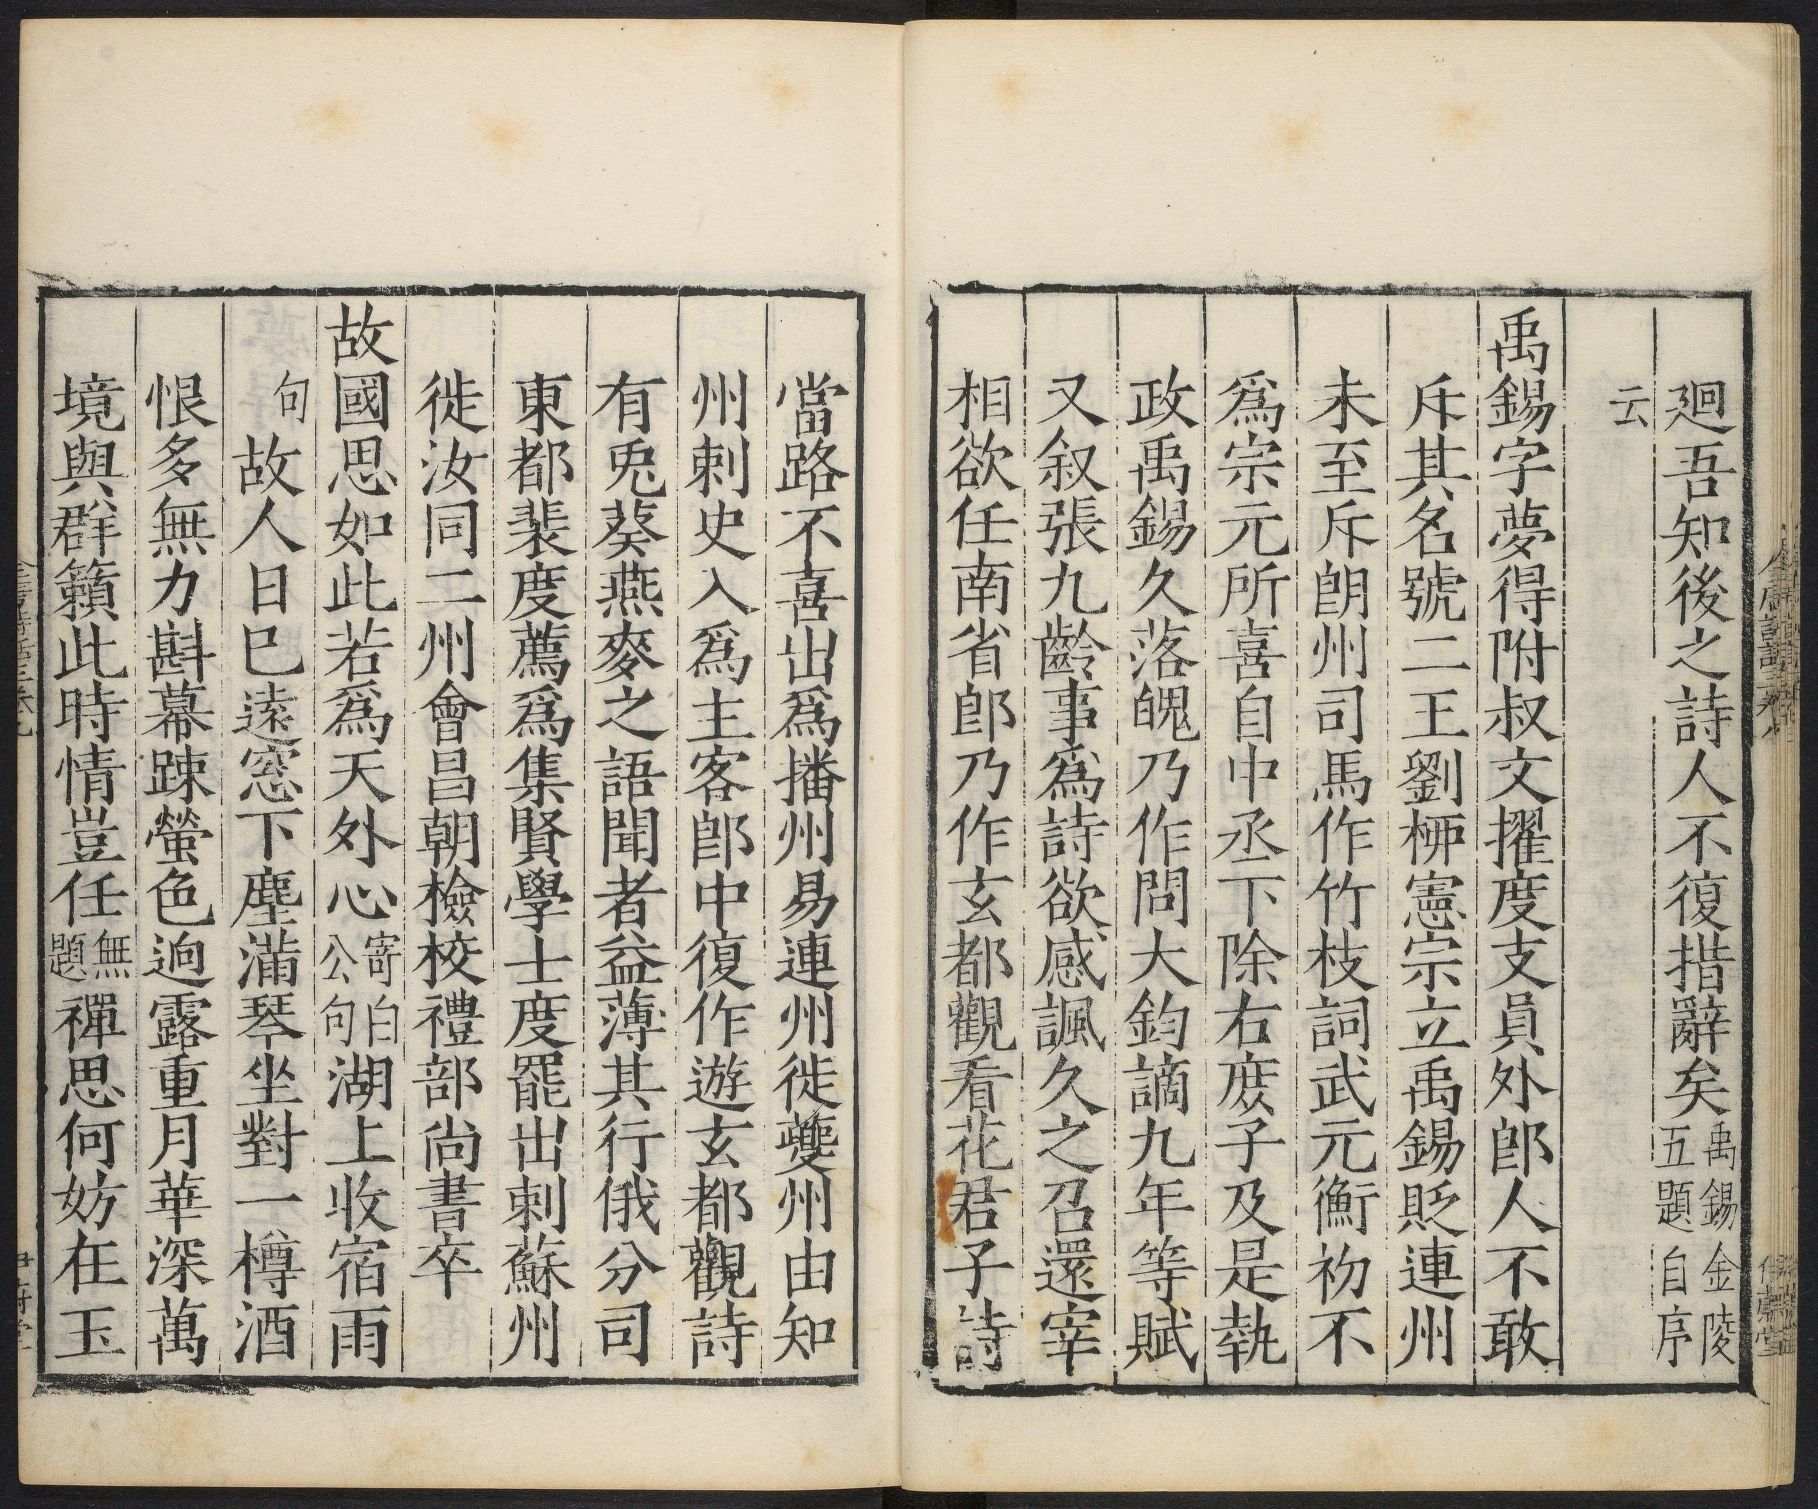 廻吾知後之詩人不復措辭矣禹錫金陵五題自序
云
禹錫字夢得附叔文擢度支員外郎人不敢
斥其名號二王劉栁憲宗立禹錫貶連州
未至斥朗州司馬作竹枝詞武元衡初不
爲宗元所喜自中丞下除右庻子及是執
政禹錫久落魄乃作問大鈞謫九年等賦
又叙張九齡事爲詩欲感諷久之召還宰
相欲任南省郎乃作玄都觀看花君子詩
當路不喜出爲播州易連州徙夔州由知
州刺史入爲主客郎中復作遊玄都觀詩
有兎葵燕麥之語聞者益薄其行俄分司
東都裴度薦爲集賢學士度罷出刺蘇州
徙汝同二州會昌朝檢校禮部尚書卒
故國思如此若爲天外心寄白公句湖上收宿雨
句故人日巳遠窓下塵滿琴坐對一樽酒
恨多無力斟幕踈螢色逈露重月華深萬
境與群籟此時情豈任無題禪思何妨在玉